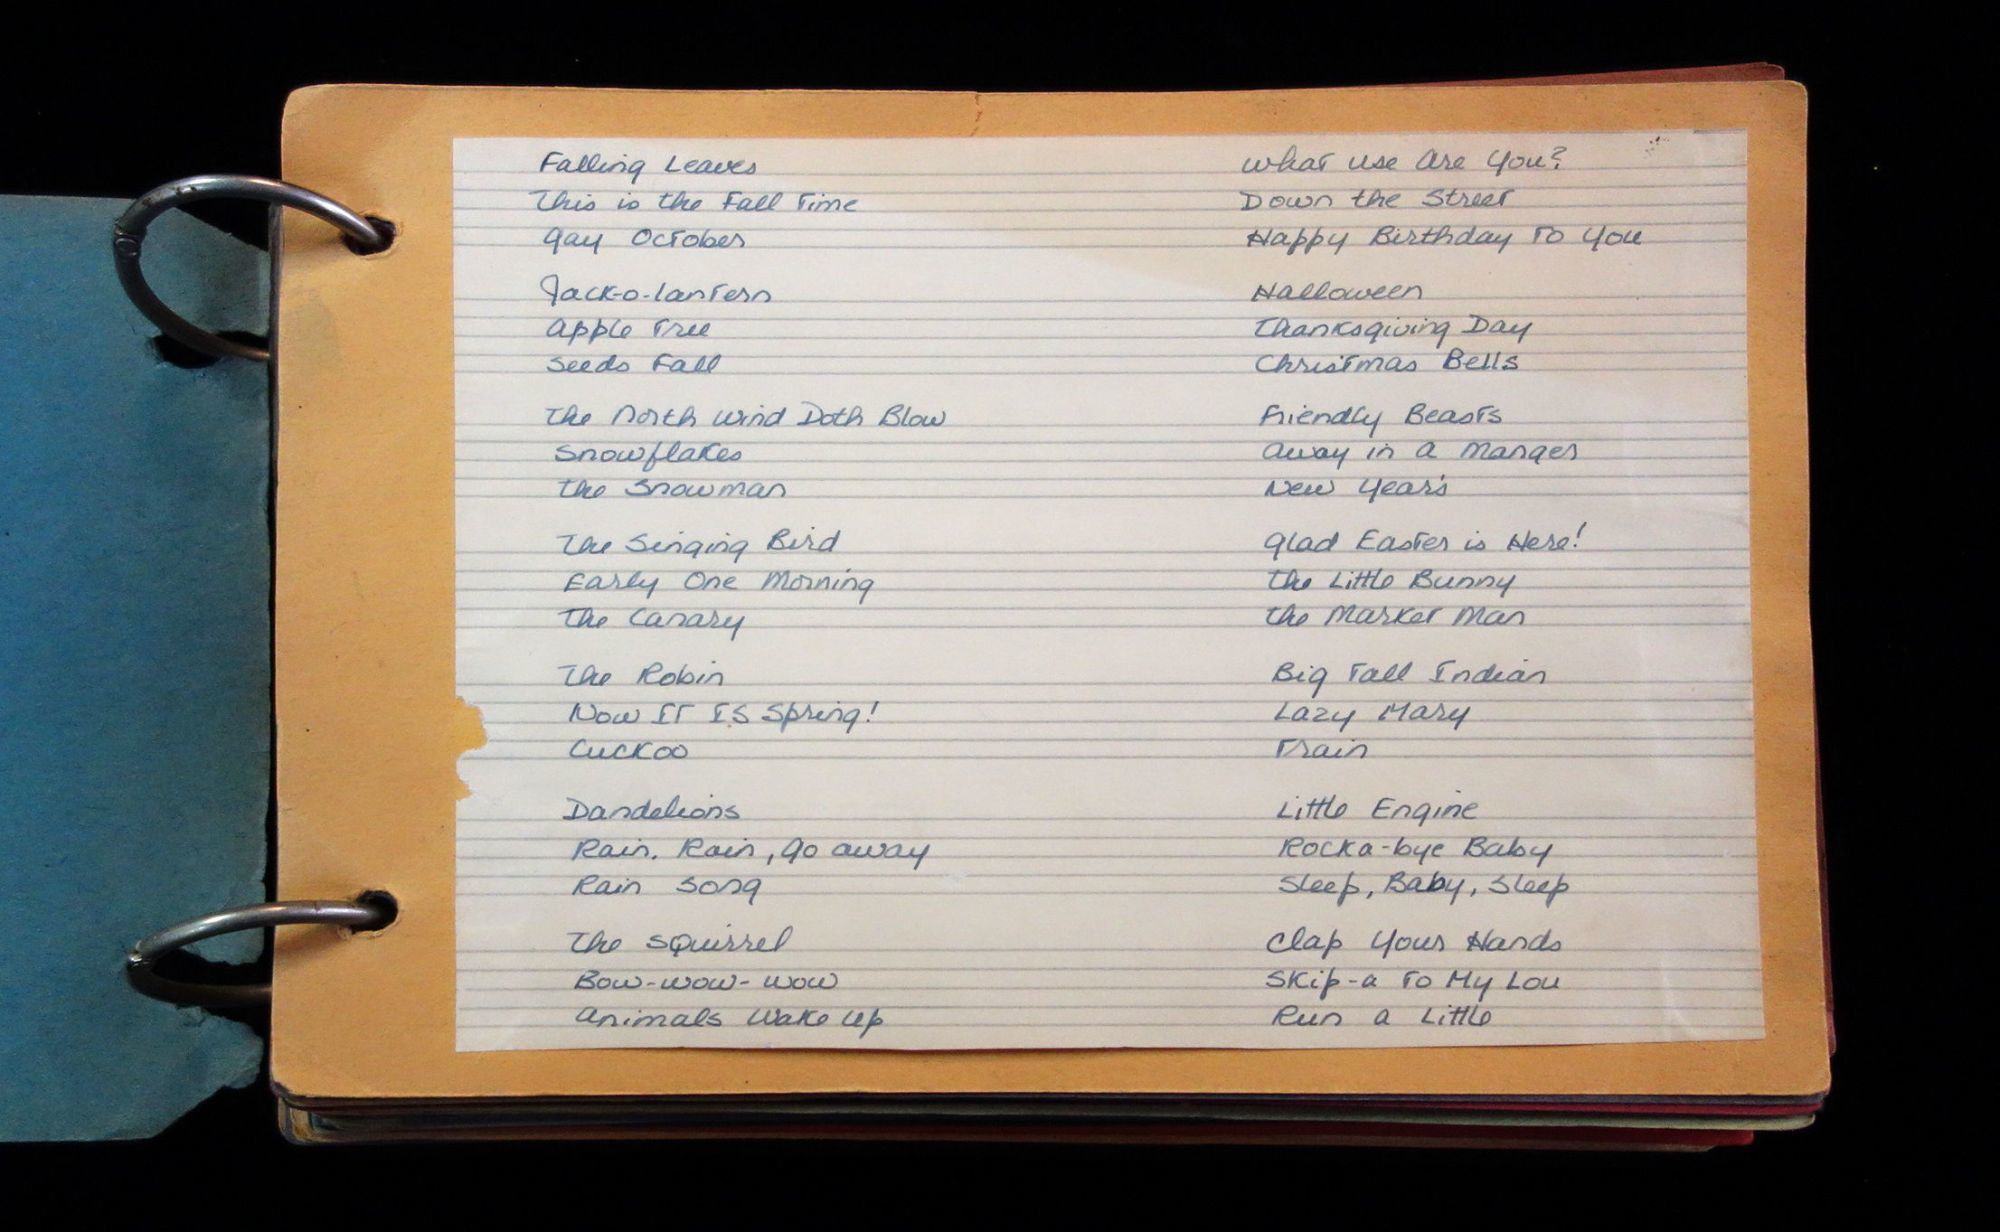 Falling Leaves
This is the Fall Time
Gay October
Jack-o-lantern
Apple Tree
Seeds Fall
The North Wind Doth Blow
Snowflakes
The Snowman
The Singing Bird
Early One Morning
The Canary
The Robin
Now It Is Spring!
Cuckoo
Dandelions
Rain, Rain, go away
Rain Song
The Squirrel
Bow-wow-wow
Animals Wake Up
What Use Are You?
Down the Street
Happy Birthday To You
Halloween
Thanksgiving Day
Christmas Bells
Friendly Beasts
Away in a Manger
New Year's
Glad Easter is Here!
The Little Bunny
The Market Man
Big Tall Indian
Lazy Mary
Train
Little Engine
Rocka-bye Baby
Sleep, Baby, Sleep
Clap Your Hands
Skip-a To My Lou
Run a Little